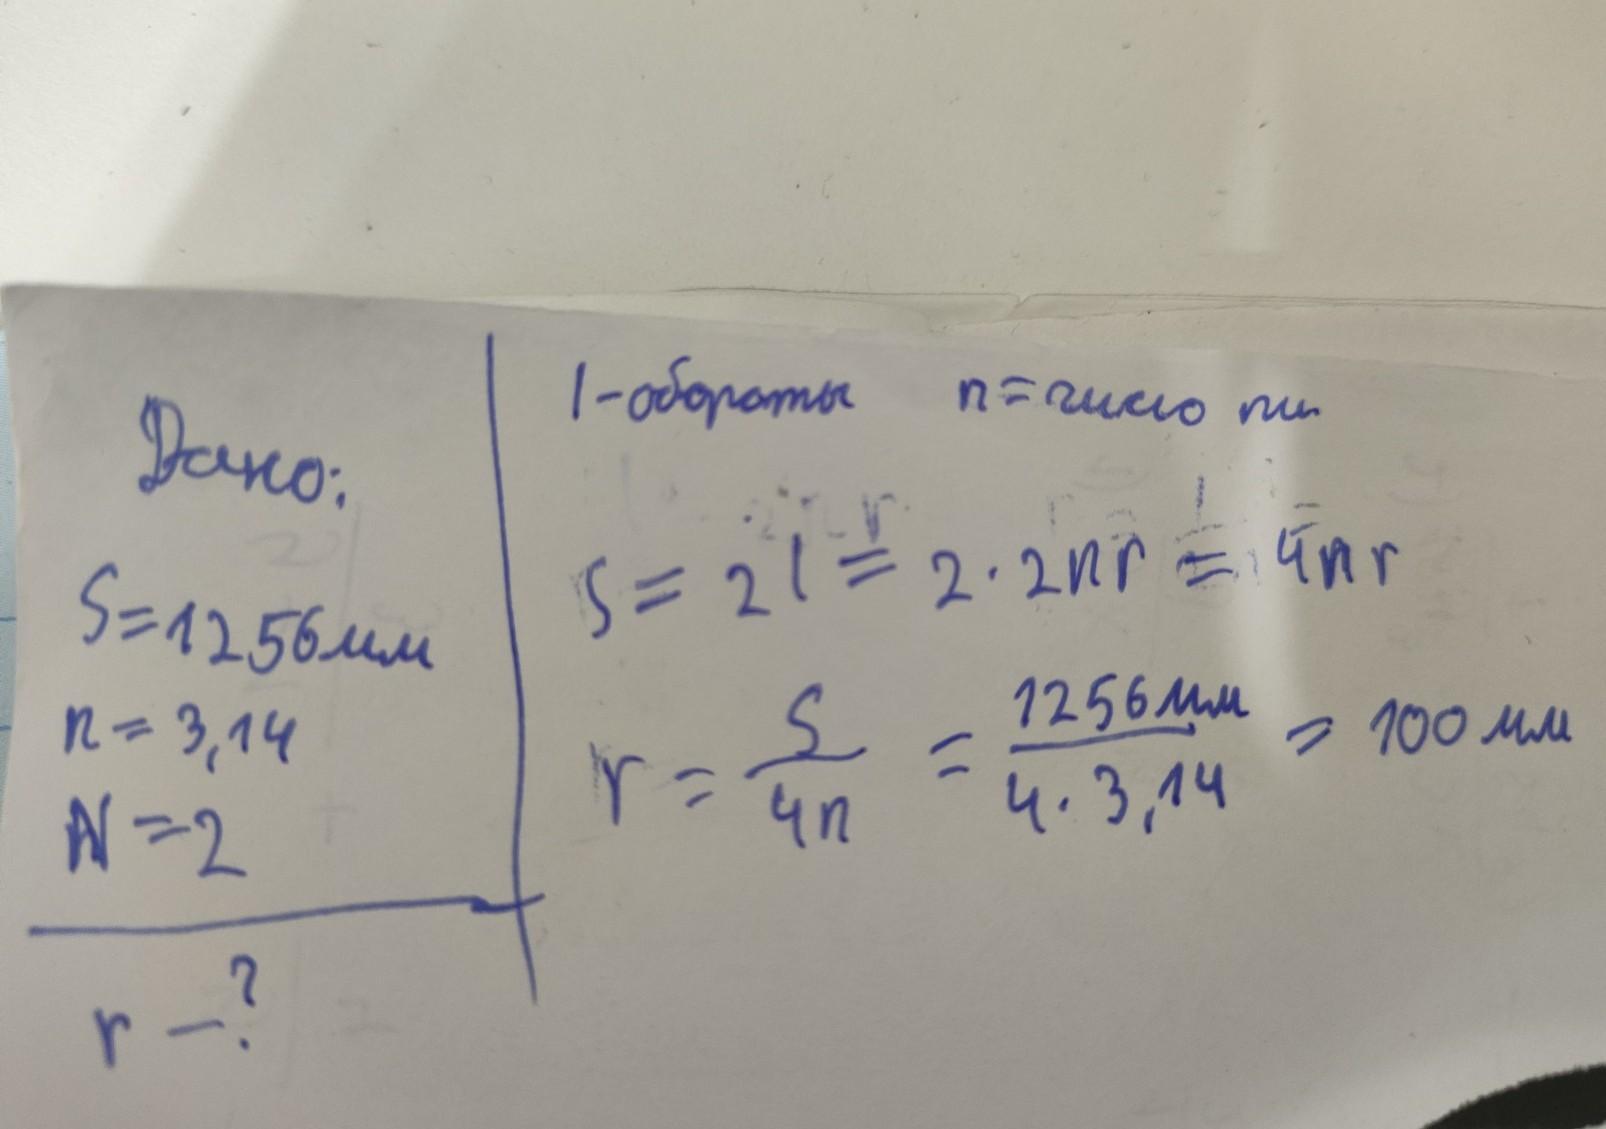 Дано:
S=1256мм
п=3,14
N=2
r-?
l-обороты п=число пи
S=2l=2·2пr=4пr
r=S/4п=1256мм/4·3,14=100мм